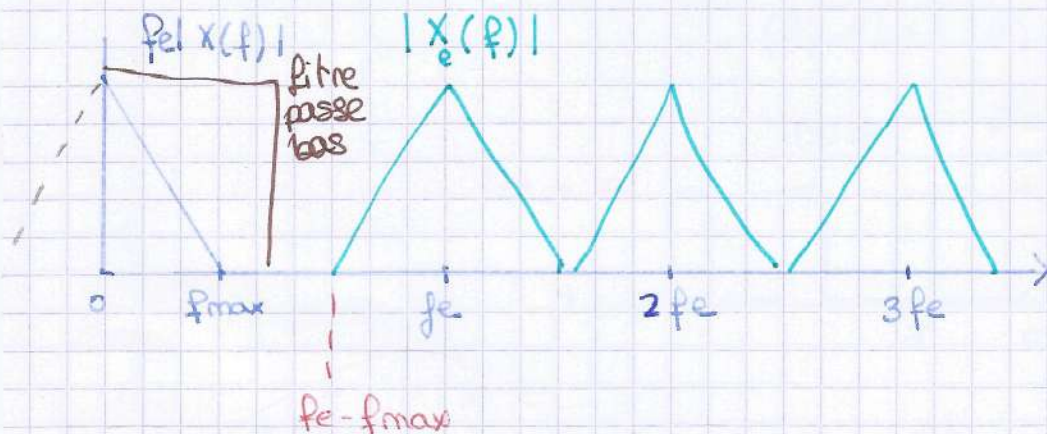 fe|X(f)|
|Xe(f)|
filtre
passe
bas
0
fmax
fe
2fe
3fe
fe-fmax